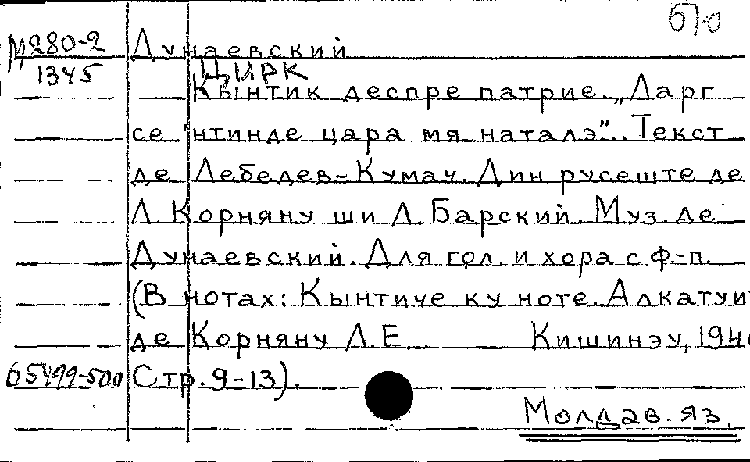 б/о
М280-2 Дунаевский
1345 ЦИРК
Кынтик деспре патрие. „Ларг
се 'нтинде цара мя наталэ". Текст
де Лебедев-Кумач. Дин русеште де
Л. Корняну ши Л. Барский. Муз. де
Дунаевский. Для гол. и хора с ф-п.
(В нотах: Кынтиче ку ноте. Алкатуи
де Корняну Л.Е. Кишинэу, 194
65499-500 Стр. 9-13).
Молдав. яз.